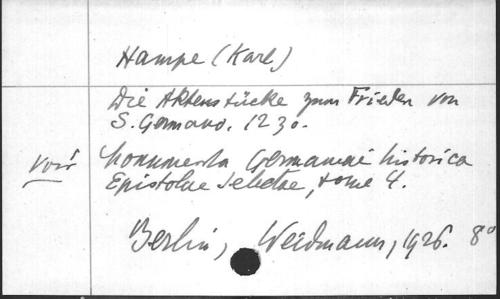 Hampe (Karl)
Die Aktenstücke zum Frieden von
S. Germano. 1230.
voir Monumenta Germaniae historica
Epistolae selectae, tome 4.
Berlin, Weidmann, 1926. 8°